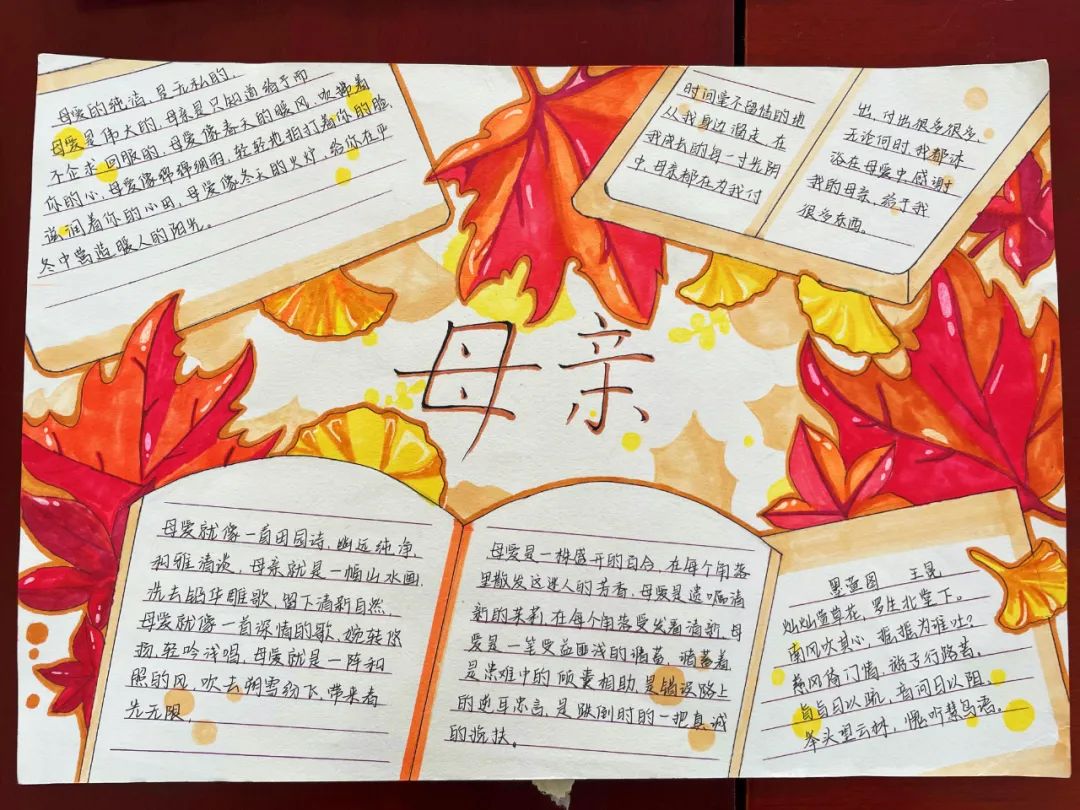 母爱的纯洁,是无私的,
母爱是伟大的,母亲是只知道给予而
不企求回服的,母爱像春天的暖风,吹拂着
你的心,母爱像绵绵细雨,轻轻地拍打着你的脸,
滋润着你的心田,母爱像冬天的火炉,给你在严
冬中营造暖人的阳光。
时间毫不留情的地
从我身边溜走,在
我成长的每一寸光阴
中,母亲都在为我付
出,付出很多很多,
无论何时,我都沐
浴在母爱中感谢
我的母亲,给予我
很多东西。
母亲
母爱就像一首田园诗,幽远纯净,
和雅清淡,母亲就是一幅山水画,
洗去铅华雕歌,留下清新自然
母爱就像一首深情的歌,婉转悠
扬,轻吟浅唱,母爱就是一阵和
照的风,吹去朔雪纷飞,带来春
光无限,
母爱是一株盛开的百合,在每个角落
里散发这迷人的芳香,母爱是清
新的茉莉,在每个角落发着清新,母
爱是一笔受益匪浅的
是患难中的倾囊相助,是错误路上
的逆耳忠言,是跌倒时的一把真诚
的搀扶。
王冕
灿灿萱草花,罗生北堂下。
南风吹其心,摇摇为谁吐?
慈风倚门情,游子行路苦。
甘旨日以疏,音问日以阻,
举头望云林,愧听慧鸟语。